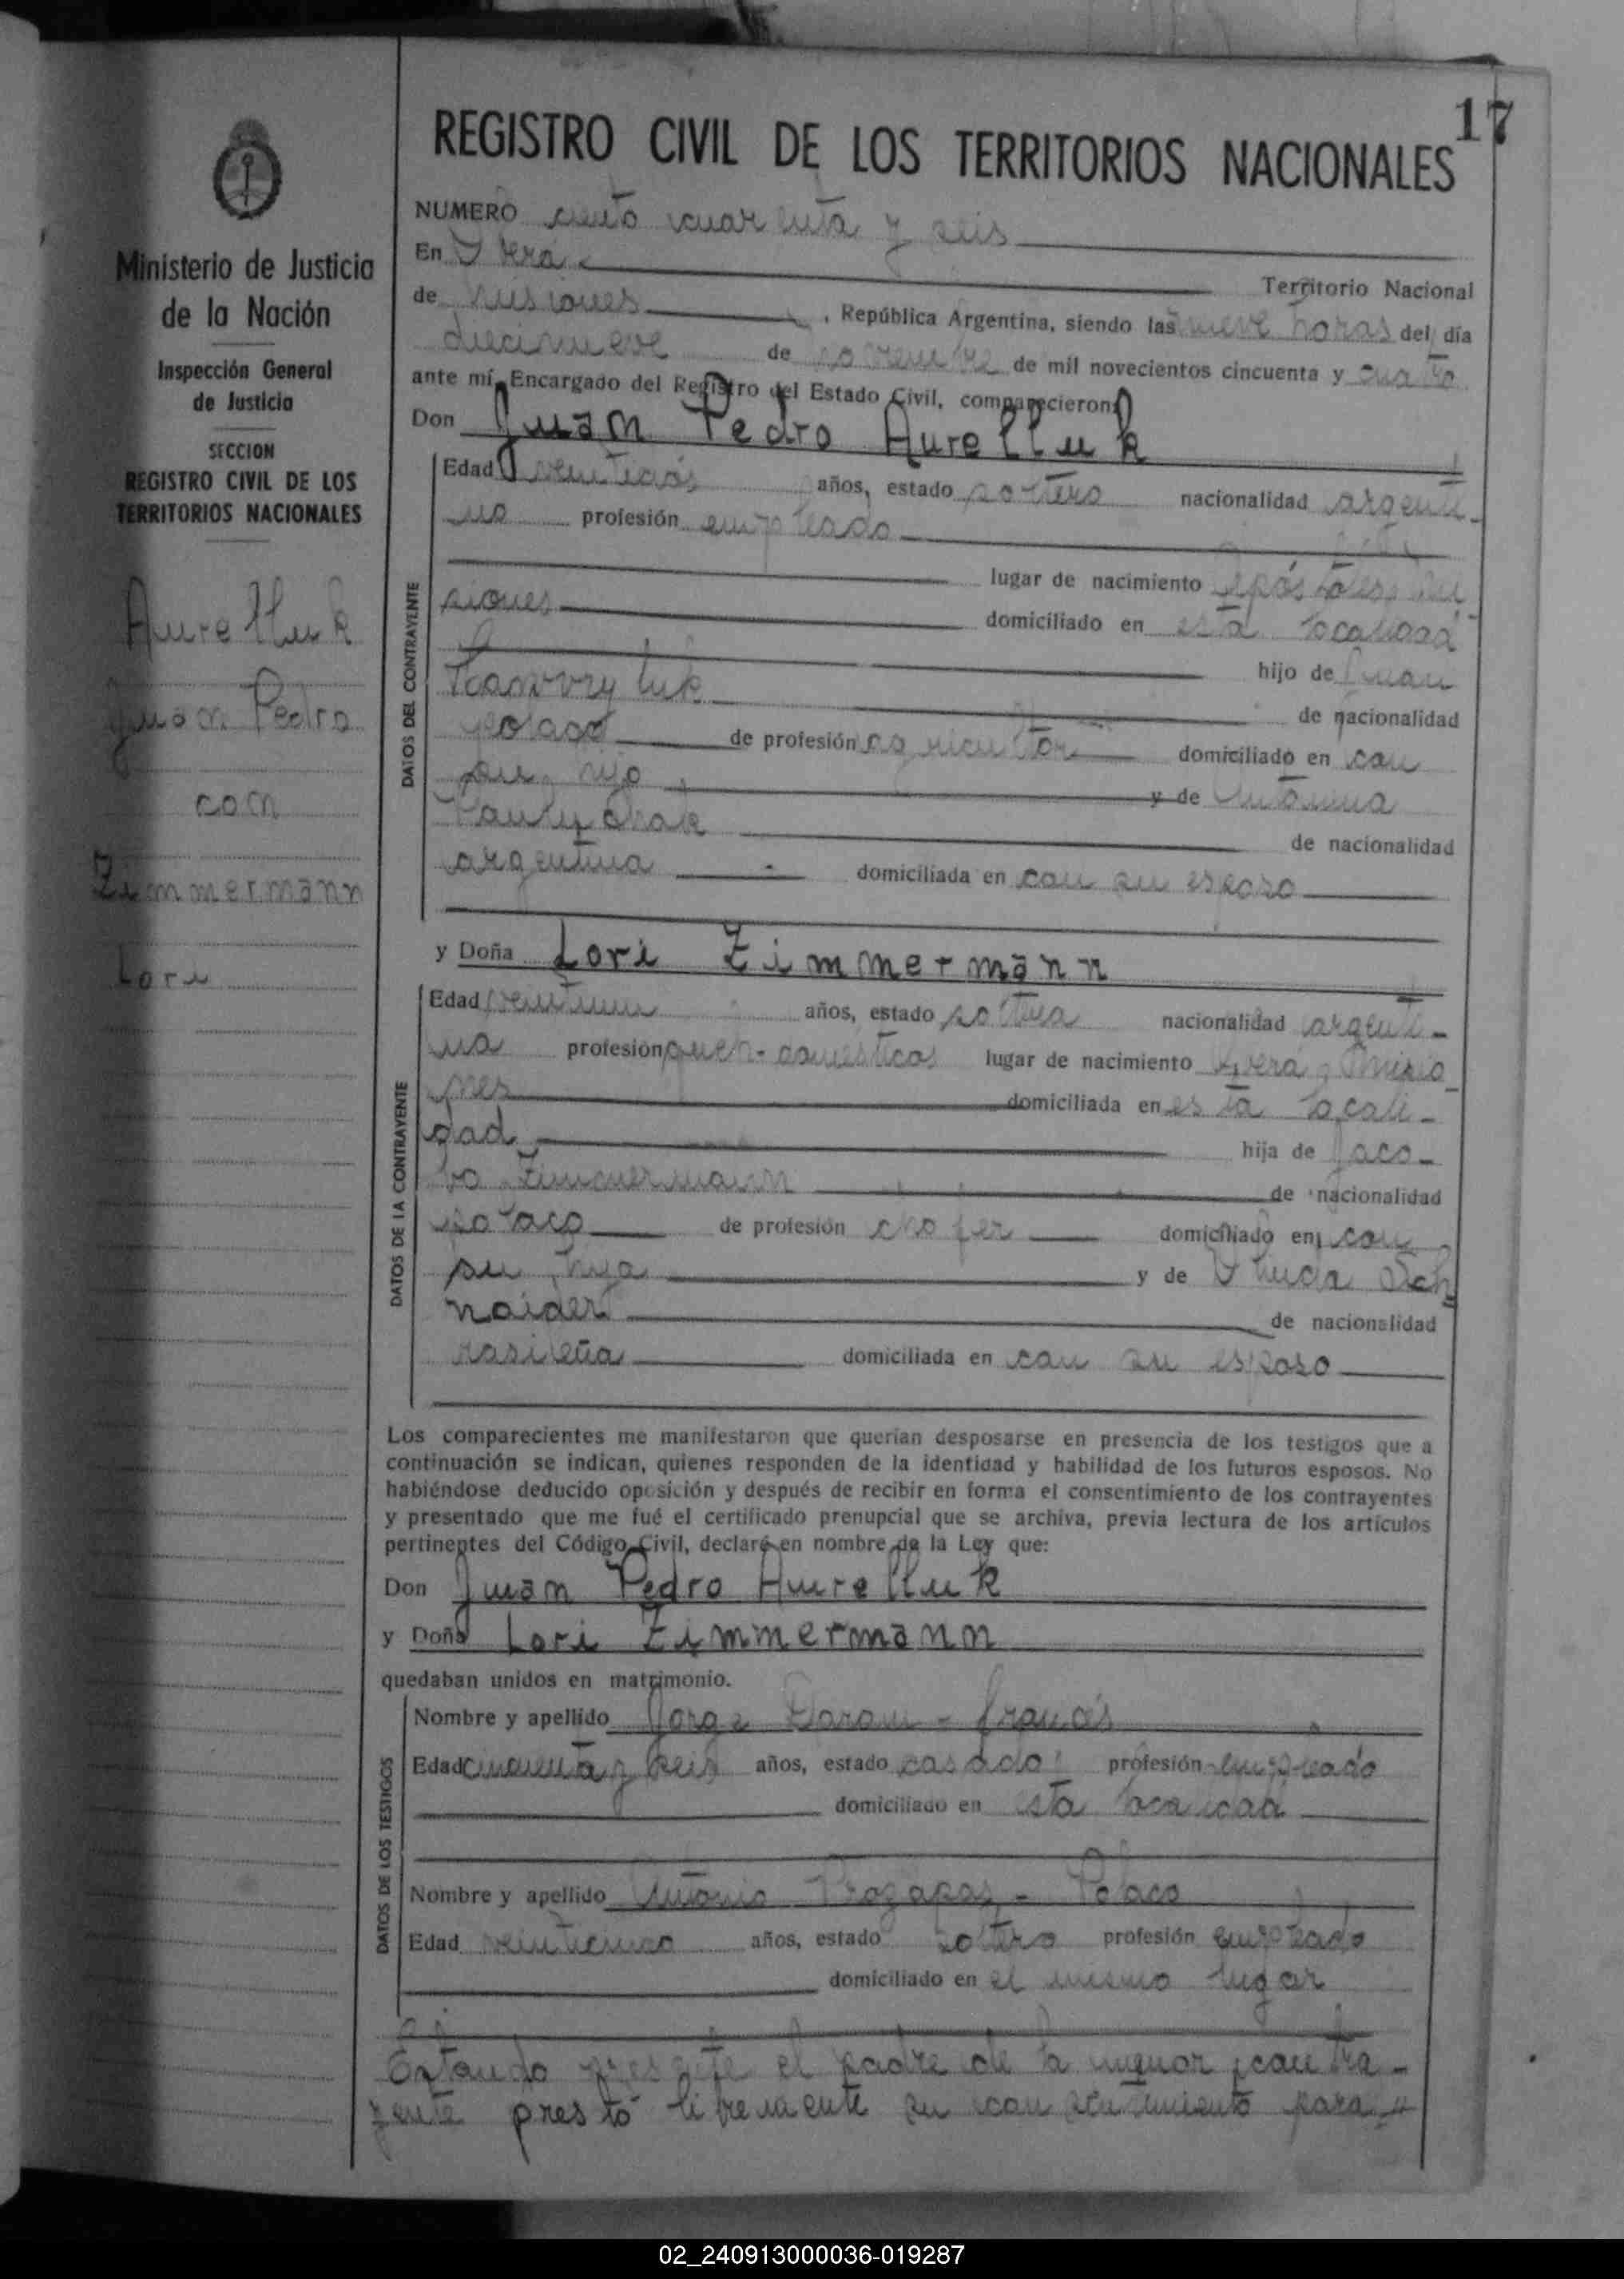 17
REGISTRO CIVIL DE LOS TERRITORIOS NACIONALES
Ministerio de Justicia
de la Nación
Inspección General
de Justicia
SECCION
REGISTRO CIVIL DE LOS
TERRITORIOS NACIONALES
Aurelluk
Juan Pedro
con
Zimmermann
Lori
NUMERO ciento cuarenta y seis
En Oberá
Territorio Nacional
de Misiones, República Argentina, siendo las nueve horas del día
diecinueve de noviembre de mil novecientos cincuenta y cuatro
ante mí, Encargado del Registro del Estado Civil, comparecieron:
Don Juan Pedro Aurelluk
DATOS DEL CONTRAYENTE
Edad años, estado soltero nacionalidad argenti-
no profesión empleado
lugar de nacimiento Apóstoles Mi-
siones domiciliado en esta localidad
hijo de Juan
de nacionalidad
polaco de profesión agricultor domiciliado en con
su hijo y de Antonina
de nacionalidad
argentina domiciliada en con su esposo
y Doña Lori Zimmermann
DATOS DE LA CONTRAYENTE
Edad años, estado soltera nacionalidad argenti-
na profesión queh. domésticos lugar de nacimiento Oberá, Misio-
nes domiciliada en esta locali-
dad hija de Jaco-
bo Zimmermann de nacionalidad
polaco de profesión chofer domiciliado en con
su hija y de Sch
naider de nacionalidad
brasileña domiciliada en con su esposo
Los comparecientes me manifestaron que querían desposarse en presencia de los testigos que a
continuación se indican, quienes responden de la identidad y habilidad de los futuros esposos. No
habiéndose deducido oposición y después de recibir en forma el consentimiento de los contrayentes
y presentado que me fué el certificado prenupcial que se archiva, previa lectura de los artículos
pertinentes del Código Civil, declaré en nombre de la Ley que:
Don Juan Pedro Aurelluk
y Doña Lori Zimmermann
quedaban unidos en matrimonio.
DATOS DE LOS TESTIGOS
Nombre y apellido Jorge - francés
Edad cincuenta y seis años, estado casado profesión empleado
domiciliado en esta localidad
Nombre y apellido Antonio - Polaco
Edad años, estado soltero profesión empleado
domiciliado en el mismo lugar
Estando presente el padre de la menor contra-
yente prestó libremente su consentimiento para
02_240913000036-019287